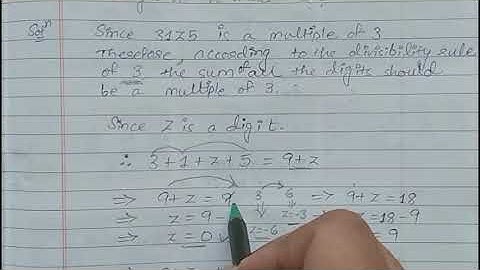 Solⁿ Since 31Z5 is a multiple of 3
Therefore, according to the divisibility rule
of 3 the sum of all the digits should
be a multiple of 3.
Since Z is a digit.
∴ 3+1+z+5 = 9+z
⇒ 9+z = 9 3 6 ⇒ 9+z = 18
⇒ z = 9- z=-3 z = 18-9
⇒ z = 0 z=-6 = 9